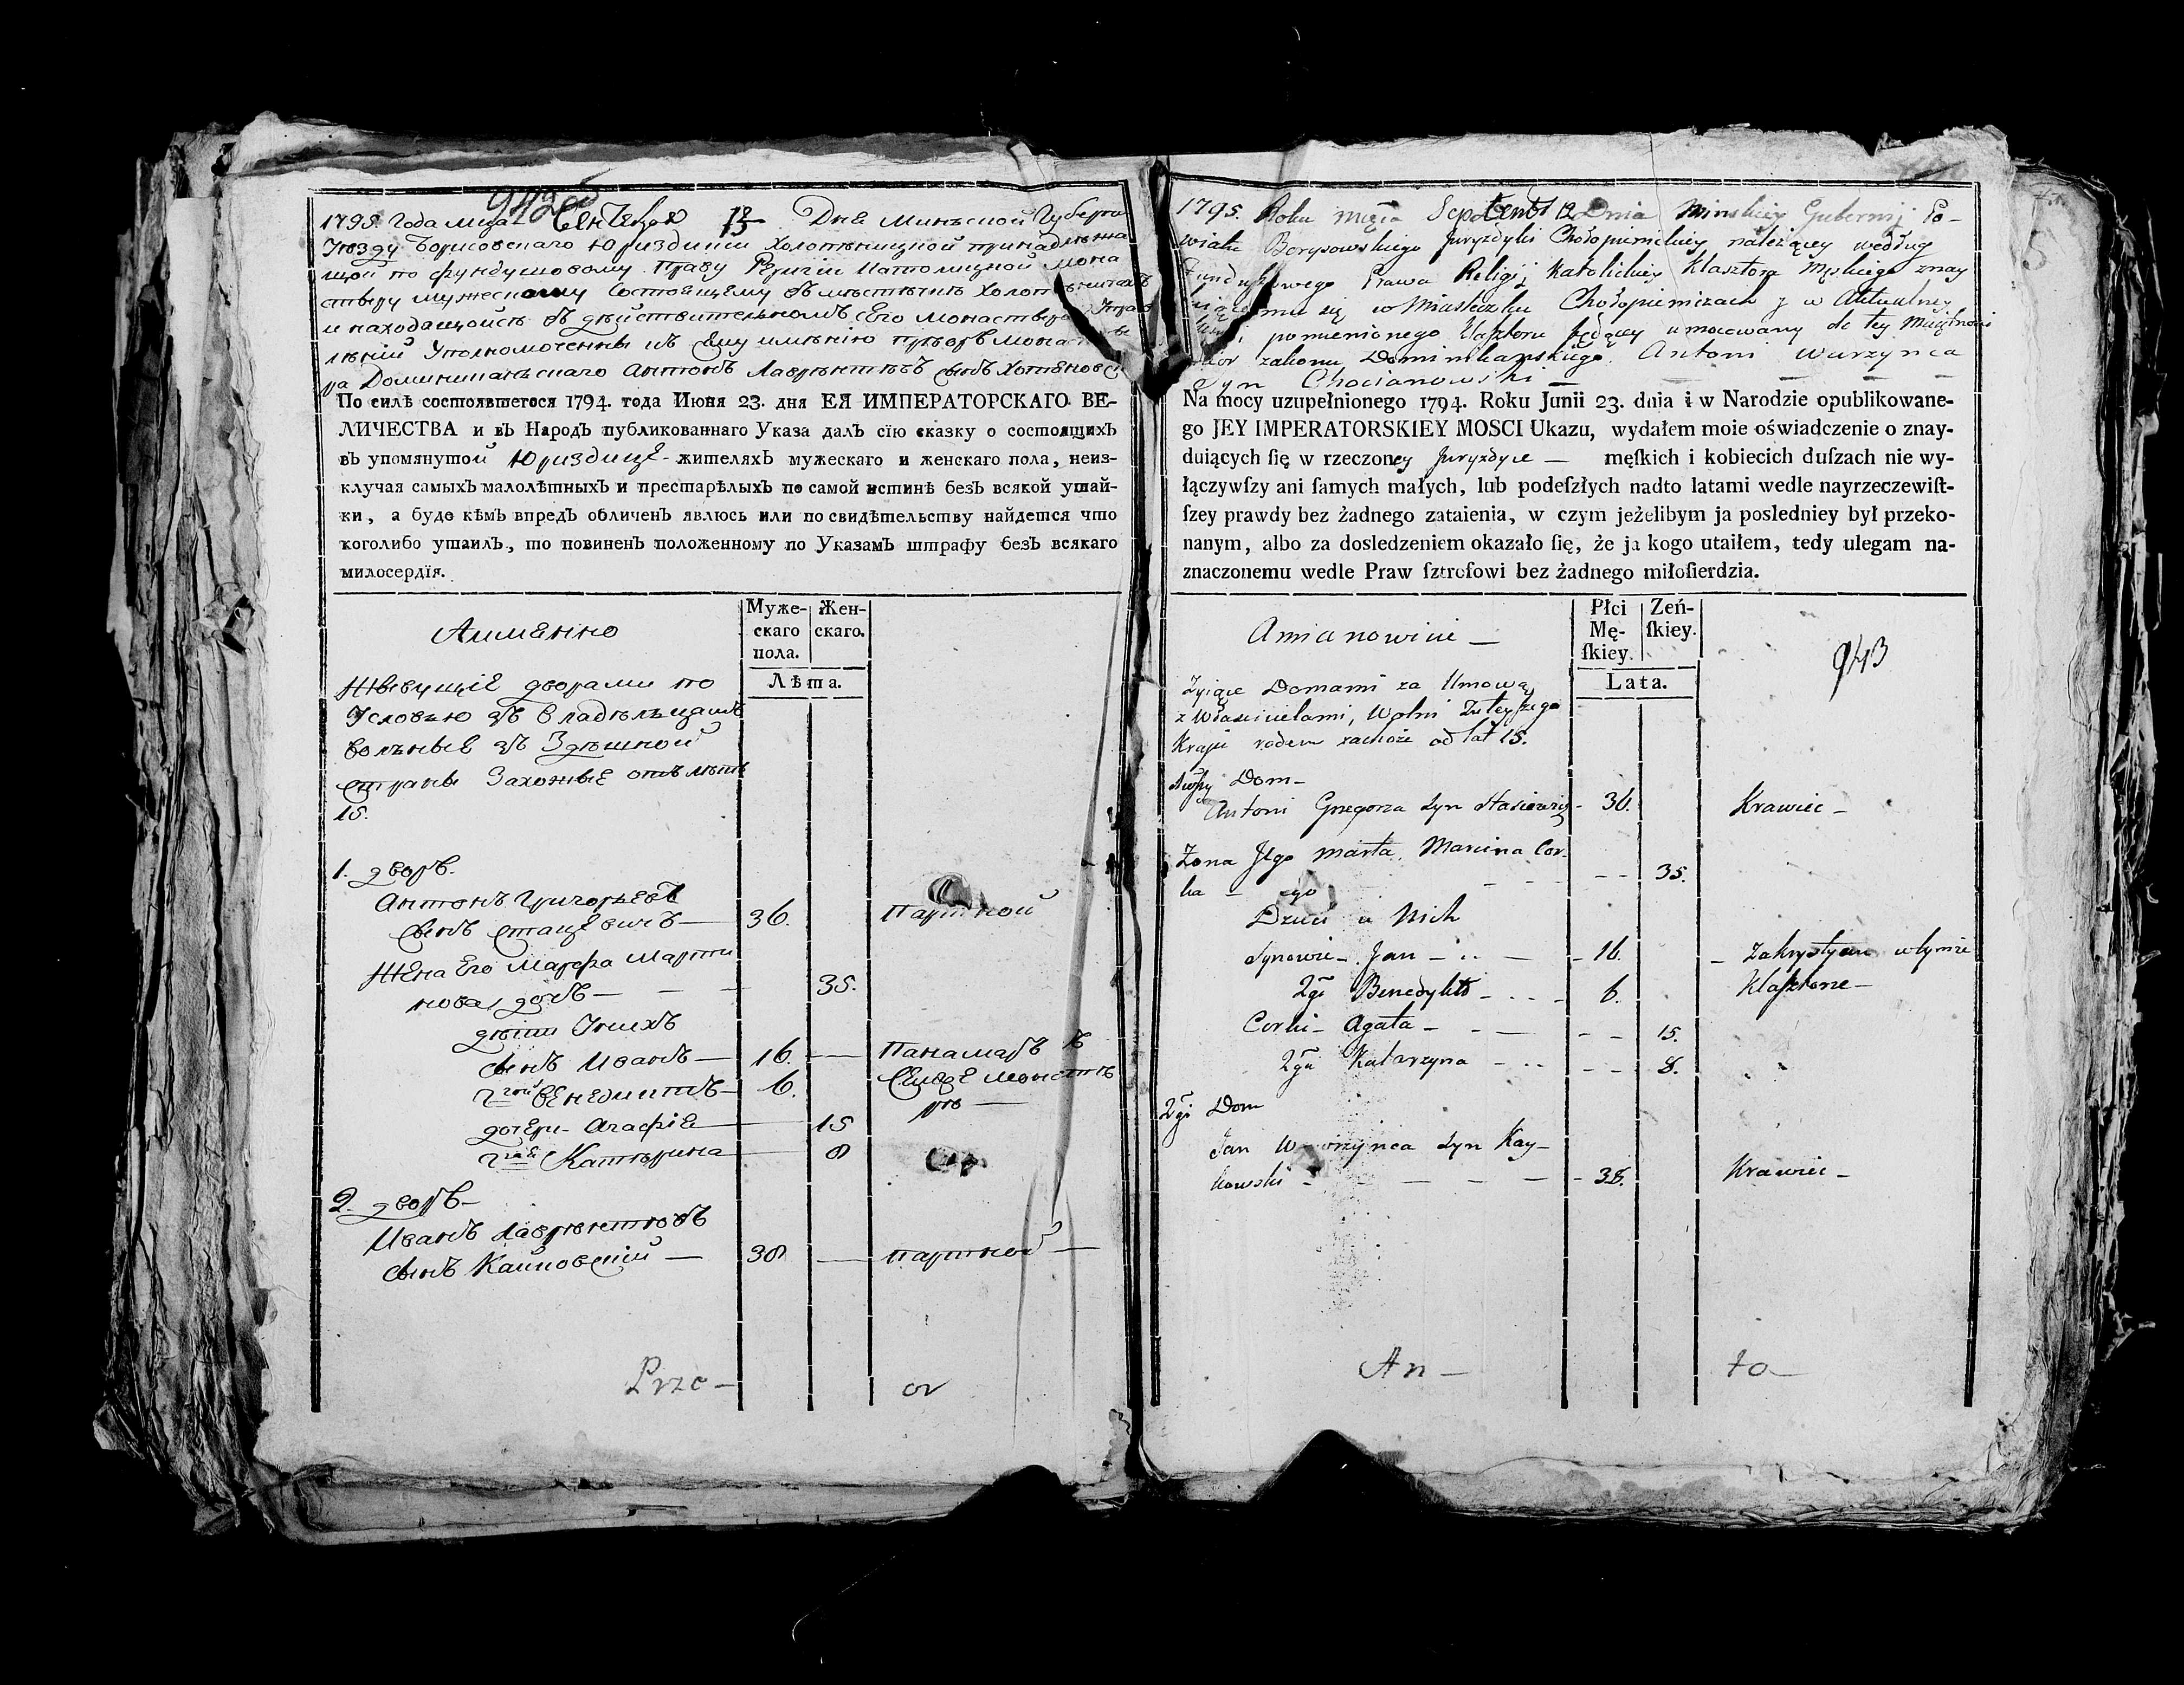 942об
1795 Года мца Сентебра 12 Дня Минской Губерни
Уезду Борисовскаго Юриздики Холопѣницкой принадлежа
щой по фундушовому Праву Религіи Католицкой мона
стверу мужескому состоящему въ мѣстѣчкѣ Холопѣничахъ
и находящойся въ дѣйствительномъ Его монаствера Управ
лѣніи Уполномоченны къ сему имѣнію приоръ монаст
ра Доминиканскаго Антонъ Лаврентьевъ сынъ Хотяновс
По силѣ состоявшегося 1794. года Июня 23. дня ЕЯ ИМПЕРАТОРСКАГО ВЕ-
ЛИЧЕСТВА и въ Народъ публикованнаго Указа далъ сїю сказку о состоящихъ
въ упомянутой Юриздице - жителяхъ мужескаго и женскаго пола, неиз-
ключая самыхъ малолѣтныхъ и престарѣлыхъ по самой истинѣ безъ всякой утай-
ки, а буде кѣмъ впредъ обличенъ явлюсь или по свидѣтельству найдется что
коголибо утаилъ, то повиненъ положенному по Указамъ штрафу безъ всякаго
милосердїя.
Аимянно
Муже-
скаго
пола.
Жен-
скаго.
Лѣта.
Жывущіе дворами по
Условью зъ Владѣльцами
вольные зъ Здешной
страны Захожые отъ лѣтъ
15.
1. дворъ.
Антонъ Григорьевъ
сынъ Стацевичъ — 36. Партной
Жена Его Марфа Марти
новая дочь — — — 35.
дѣти Унихъ
сынъ Иванъ — 16. — Панамаръ в
2гой Венедиктъ — 6. Семже монасте
рѣ —
дочери - Агафія — 15
2гая Катерина — 8
2. дворъ —
Иванъ Лаврентьевъ
сынъ Кайковскій — 38 — партной —
Prze — or
1795. Roku Mięsca Septembr 12 Dnia Minskiey Gubernij Po-
wiatu Borysowskiego Juryzdyki Chołopienickiey należącey według
Funduszowego Prawa Religij Katolickiey Klasztora Męskiego znay
mu się w Miasteczku Chołopieniczach y w Aktualney
pomienionego Klasztoru będącey umocowany do tey Maiętności
zakonu Dominikanskiego Antoni Wawrzynca
Syn Chocianowski —
Na mocy uzupełnionego 1794. Roku Junii 23. dnia i w Narodzie opublikowane-
go JEY IMPERATORSKIEY MOSCI Ukazu, wydałem moie oświadczenie o znay-
duiących ſię w rzeczoney Juryzdyce — męſkich i kobiecich duſzach nie wy-
łączywſzy ani ſamych małych, lub podeſzłych nadto latami wedle nayrzeczewiſt-
ſzey prawdy bez żadnego zataienia, w czym jeżelibym ja posledniey był przeko-
nanym, albo za dosledzeniem okazało ſię, że ja kogo utaiłem, tedy ulegam na-
znaczonemu wedle Praw ſztrofowi bez żadnego miłoſierdzia.
Amianowicie —
Płci
Mę-
ſkiey.
Zeń-
ſkiey.
Lata.
943
Zyiące Domami za Umową
z Włascicielami, Wolni Zuteyszego
Kraju rodem zachoże od lat 15.
Dom —
Antoni Grzegorza Syn Stasiewicz - 36. Krawiec —
Zona Jego Marta Marcina Cor-
ka — — — 35.
Dzieci u Nich
Synowie — Jan — — 16. — Zakrystyan w tymże
2gi Benedykt — — 6. Klasztorze —
Corki — Agata — — — 15.
2ga Katarzyna — — — 8.
2gi Dom
Jan Wawrzynca Syn Kay-
kowski — — — 38. Krawiec —
An — to —